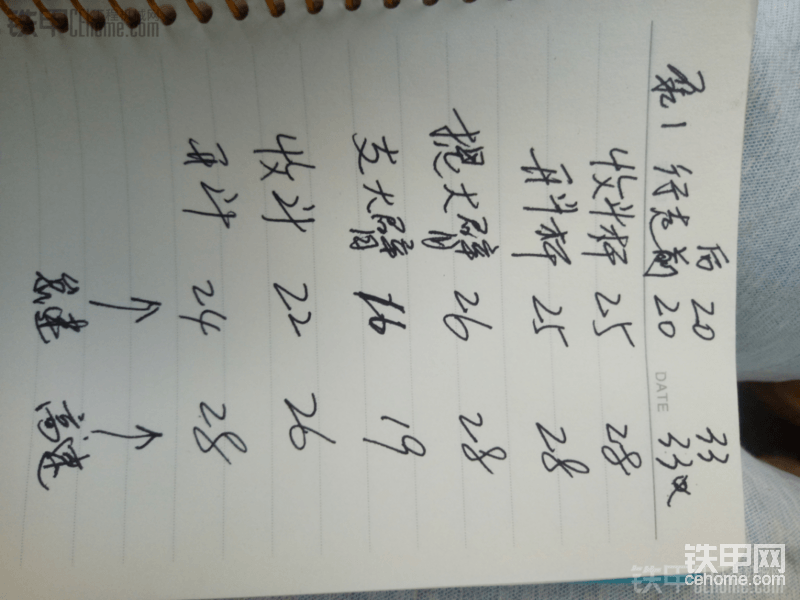 后 20 33
行走前 20 33
DATE
收斗杆 25 28
开斗杆 25 28
提大臂 26 28
支大臂 16 19
收斗 22 26
开斗 24 28
↑ ↑
怠速 高速
铁甲网
cehome.com